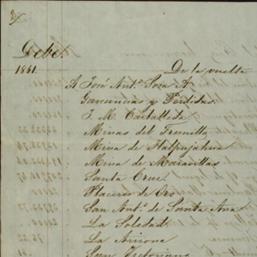 Debe.
1881.
De la vuelta
A José Ant.º Sosa A
Ganancias y Perdidas
J. M. Carballeda
Minas del
Mina de Tlalpujahua
Mina de Maravillas
Santa Cruz
Placeres de Oro
San Ant.º de Santa Ana
La Soledad
La Arizona